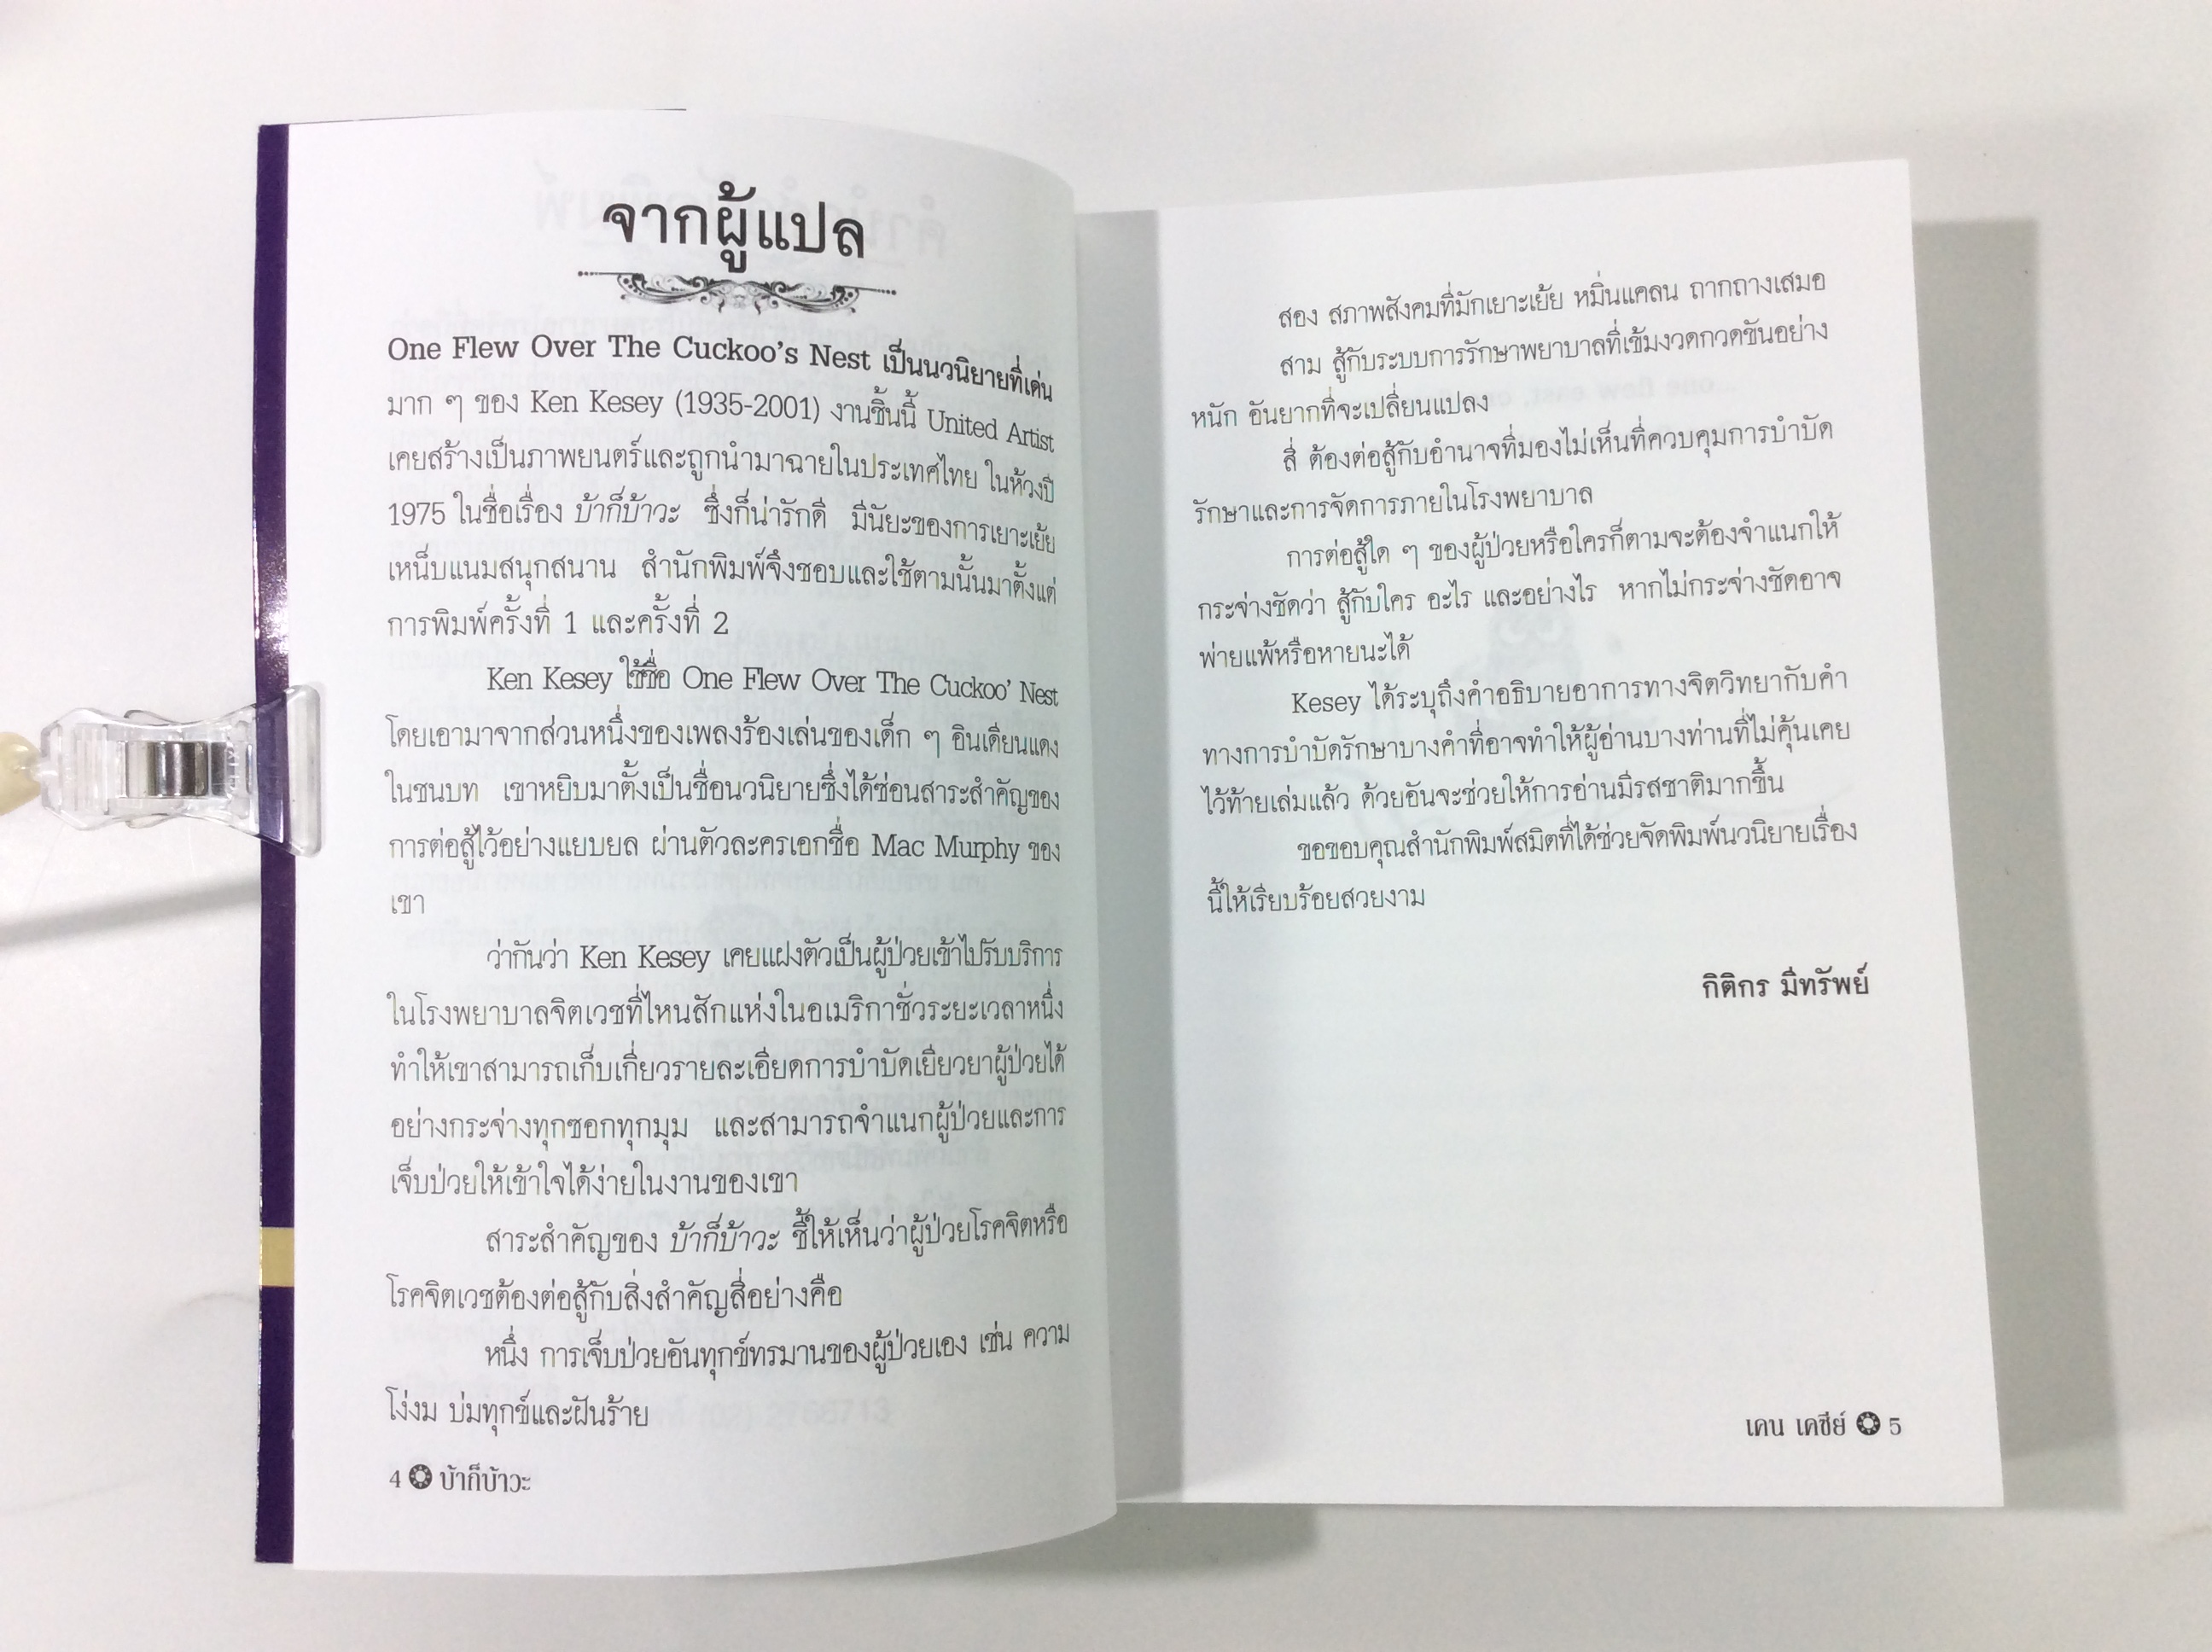 จากผู้แปล
One Flew Over The Cuckoo's Nest เป็นนวนิยายที่เด่น
มาก ๆ ของ Ken Kesey (1935-2001) งานชิ้นนี้ United Artist
เคยสร้างเป็นภาพยนตร์และถูกนำมาฉายในประเทศไทย ในห้วงปี
1975 ในชื่อเรื่อง บ้าก็บ้าวะ ซึ่งก็น่ารักดี มีนัยะของการเยาะเย้ย
เหน็บแนมสนุกสนาน สำนักพิมพ์จึงชอบและใช้ตามนั้นมาตั้งแต่
การพิมพ์ครั้งที่ 1 และครั้งที่ 2
Ken Kesey ใช้ชื่อ One Flew Over The Cuckoo' Nest
โดยเอามาจากส่วนหนึ่งของเพลงร้องเล่นของเด็ก ๆ อินเดียนแดง
ในชนบท เขาหยิบมาตั้งเป็นชื่อนวนิยายซึ่งได้ซ่อนสาระสำคัญของ
การต่อสู้ไว้อย่างแยบยล ผ่านตัวละครเอกชื่อ Mac Murphy ของ
เขา
ว่ากันว่า Ken Kesey เคยแฝงตัวเป็นผู้ป่วยเข้าไปรับบริการ
ในโรงพยาบาลจิตเวชที่ไหนสักแห่งในอเมริกาชั่วระยะเวลาหนึ่ง
ทำให้เขาสามารถเก็บเกี่ยวรายละเอียดการบำบัดเยียวยาผู้ป่วยได้
อย่างกระจ่างทุกซอกทุกมุม และสามารถจำแนกผู้ป่วยและการ
เจ็บป่วยให้เข้าใจได้ง่ายในงานของเขา
สาระสำคัญของ บ้าก็บ้าวะ ชี้ให้เห็นว่าผู้ป่วยโรคจิตหรือ
โรคจิตเวชต้องต่อสู้กับสิ่งสำคัญสี่อย่างคือ
หนึ่ง การเจ็บป่วยอันทุกข์ทรมานของผู้ป่วยเอง เช่น ความ
โง่งม บ่มทุกข์และฝันร้าย
4 บ้าก็บ้าวะ
สอง สภาพสังคมที่มักเยาะเย้ย หมิ่นแคลน ถากถางเสมอ
สาม สู้กับระบบการรักษาพยาบาลที่เข้มงวดกวดขันอย่าง
หนัก อันยากที่จะเปลี่ยนแปลง
สี่ ต้องต่อสู้กับอำนาจที่มองไม่เห็นที่ควบคุมการบำบัด
รักษาและการจัดการภายในโรงพยาบาล
การต่อสู้ใด ๆ ของผู้ป่วยหรือใครก็ตามจะต้องจำแนกให้
กระจ่างชัดว่า สู้กับใคร อะไร และอย่างไร หากไม่กระจ่างชัดอาจ
พ่ายแพ้หรือหายนะได้
Kesey ได้ระบุถึงคำอธิบายอาการทางจิตวิทยากับคำ
ทางการบำบัดรักษาบางคำที่อาจทำให้ผู้อ่านบางท่านที่ไม่คุ้นเคย
ไว้ท้ายเล่มแล้ว ด้วยอันจะช่วยให้การอ่านมีรสชาติมากขึ้น
ขอขอบคุณสำนักพิมพ์สมิตที่ได้ช่วยจัดพิมพ์นวนิยายเรื่อง
นี้ให้เรียบร้อยสวยงาม
กิติกร มีทรัพย์
เคน เคซีย์ 5